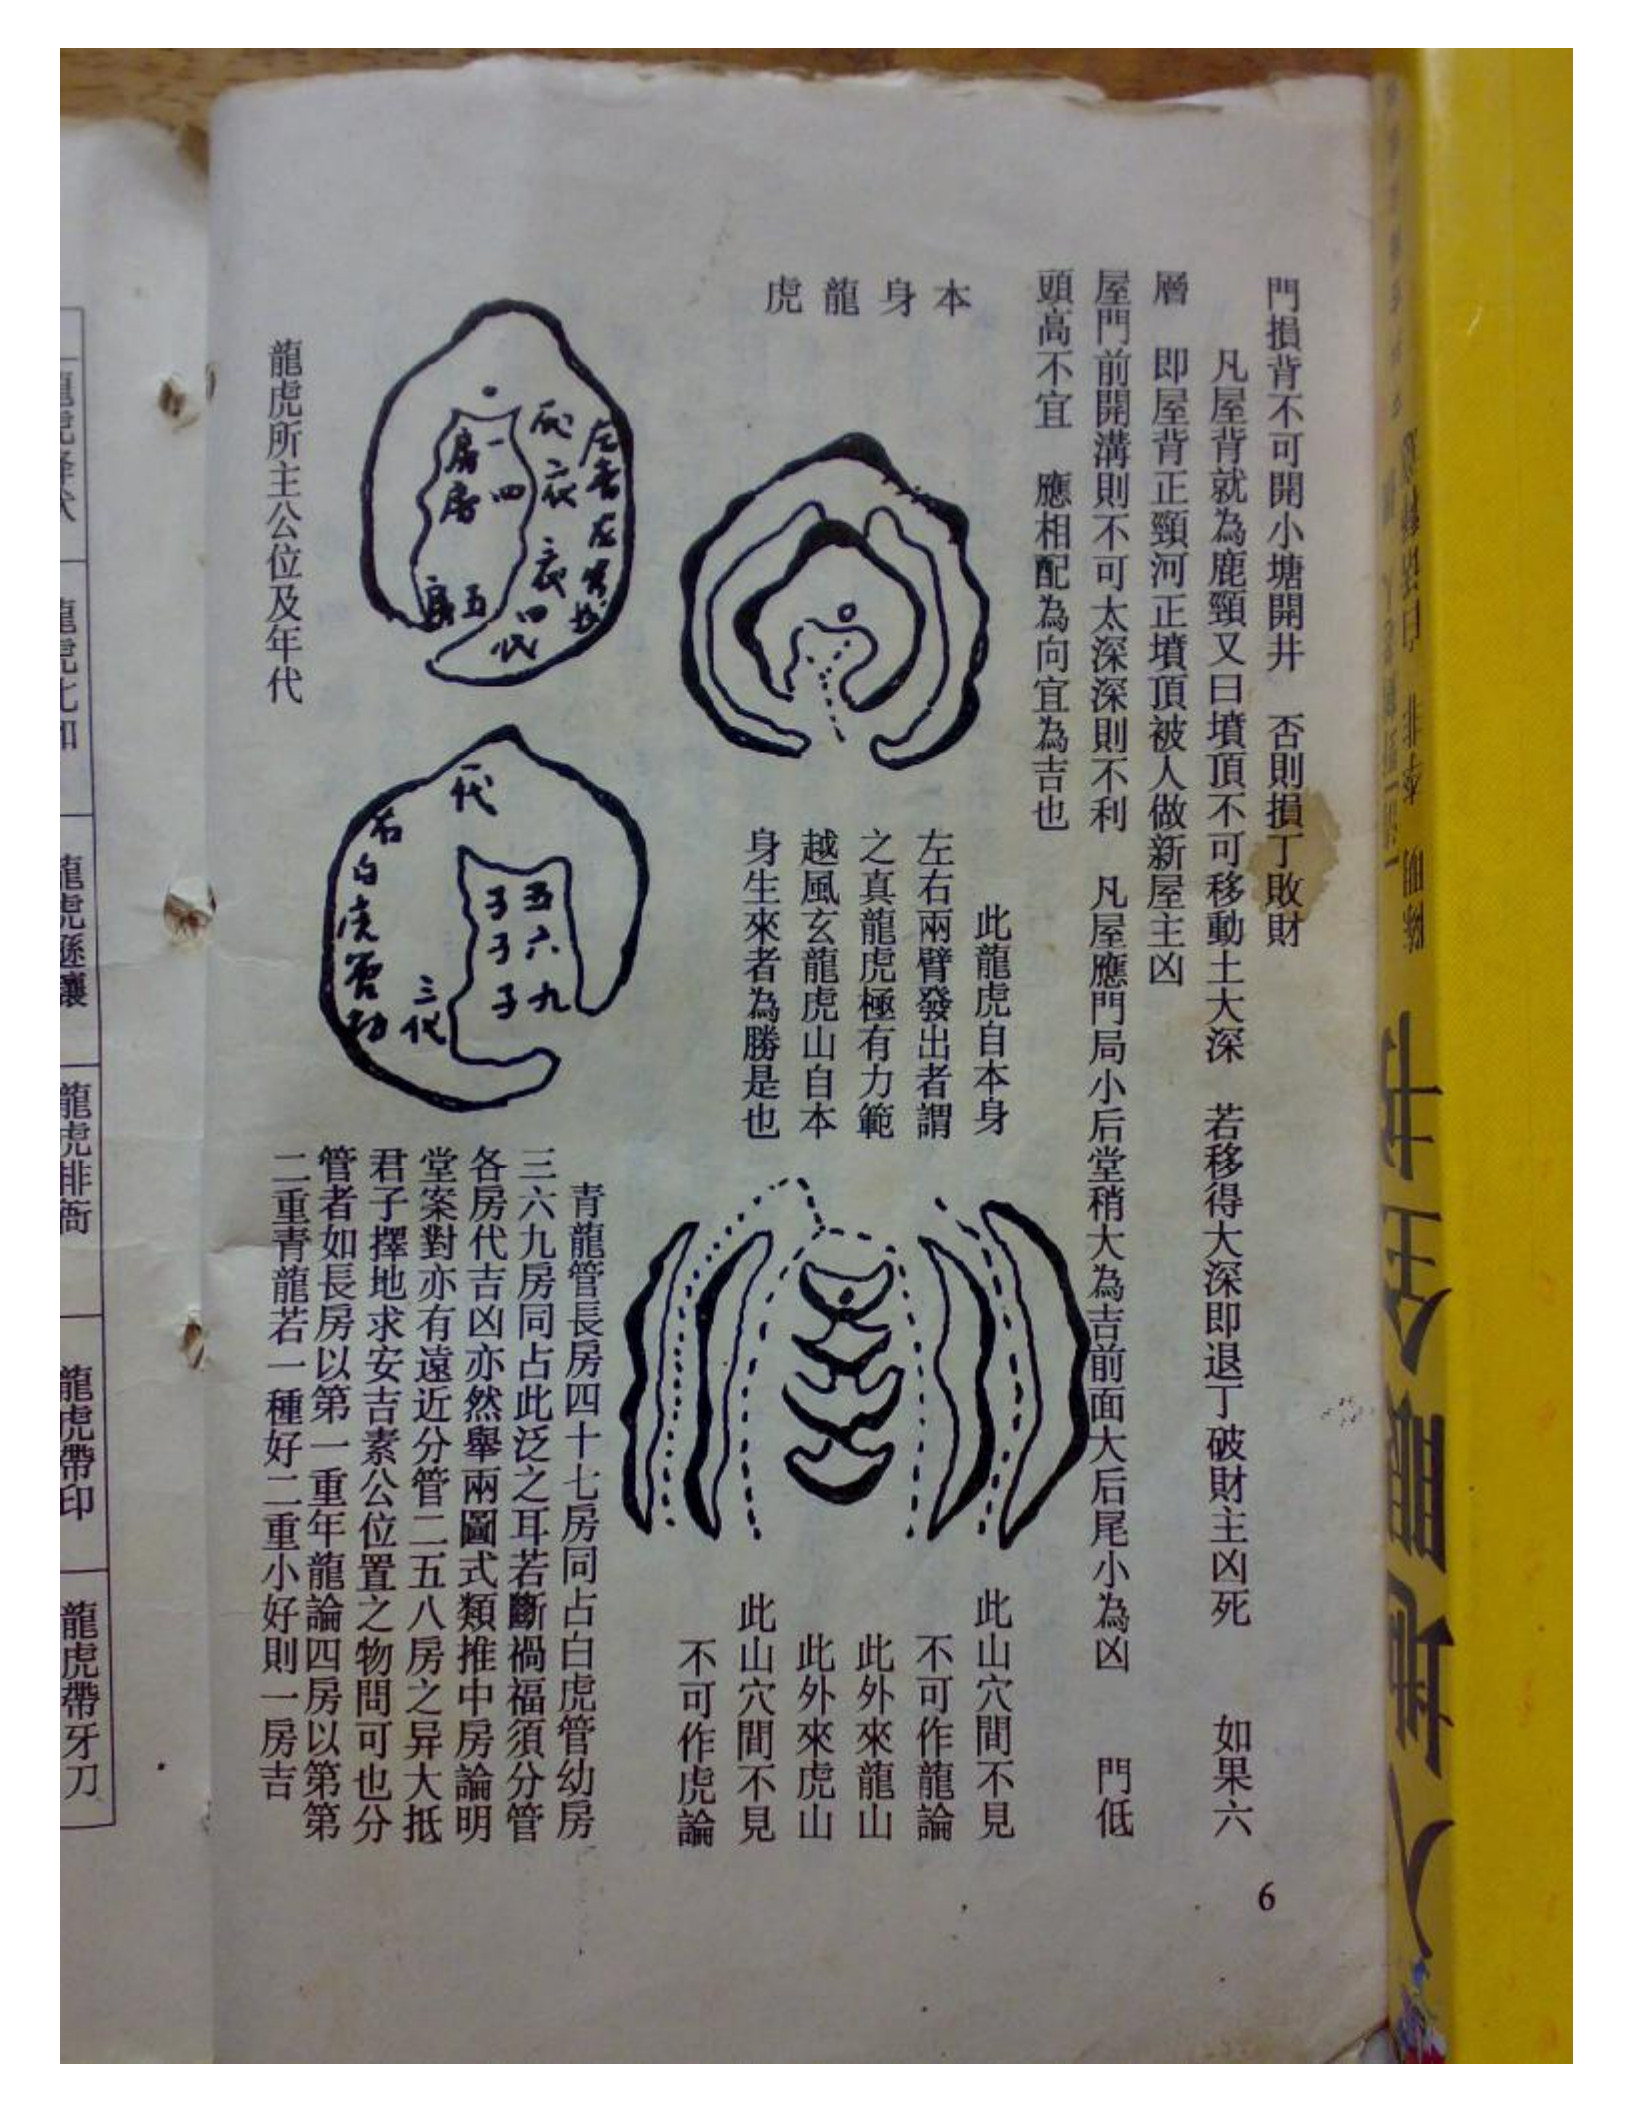 門損背不可開小塘開井　否則損丁敗財
凡屋背就為鹿頸又曰墳頂不可移動土大深　若移得大深即退丁破財主凶死　如果六
層　即屋背正頸河正墳頂被人做新屋主凶
屋門前開溝則不可太深深則不利　凡屋應門局小后堂稍大為吉前面大后尾小為凶　門低
頭高不宜　應相配為向宜為吉也
本身龍虎
此龍虎自本身
左右兩臂發出者謂
之真龍虎極有力範
越風玄龍虎山自本
身生來者為勝是也
此山穴間不見
不可作龍論
此外來龍山
此外來虎山
此山穴間不見
不可作虎論
左青
代
二代
四代
一四
房房
五房
一代
右白虎管幼
三代
五六九
子子子
龍虎所主公位及年代
青龍管長房四十七房同占白虎管幼房
三六九房同占此泛之耳若斷禍福須分管
各房代吉凶亦然舉兩圖式類推中房論明
堂案對亦有遠近分管二五八房之异大抵
君子擇地求安吉素公位置之物問可也分
管者如長房以第一重年龍論四房以第第
二重青龍若一種好二重小好則一房吉
6
龍虎遜讓
龍虎排衙
龍虎帶印
龍虎帶牙刀